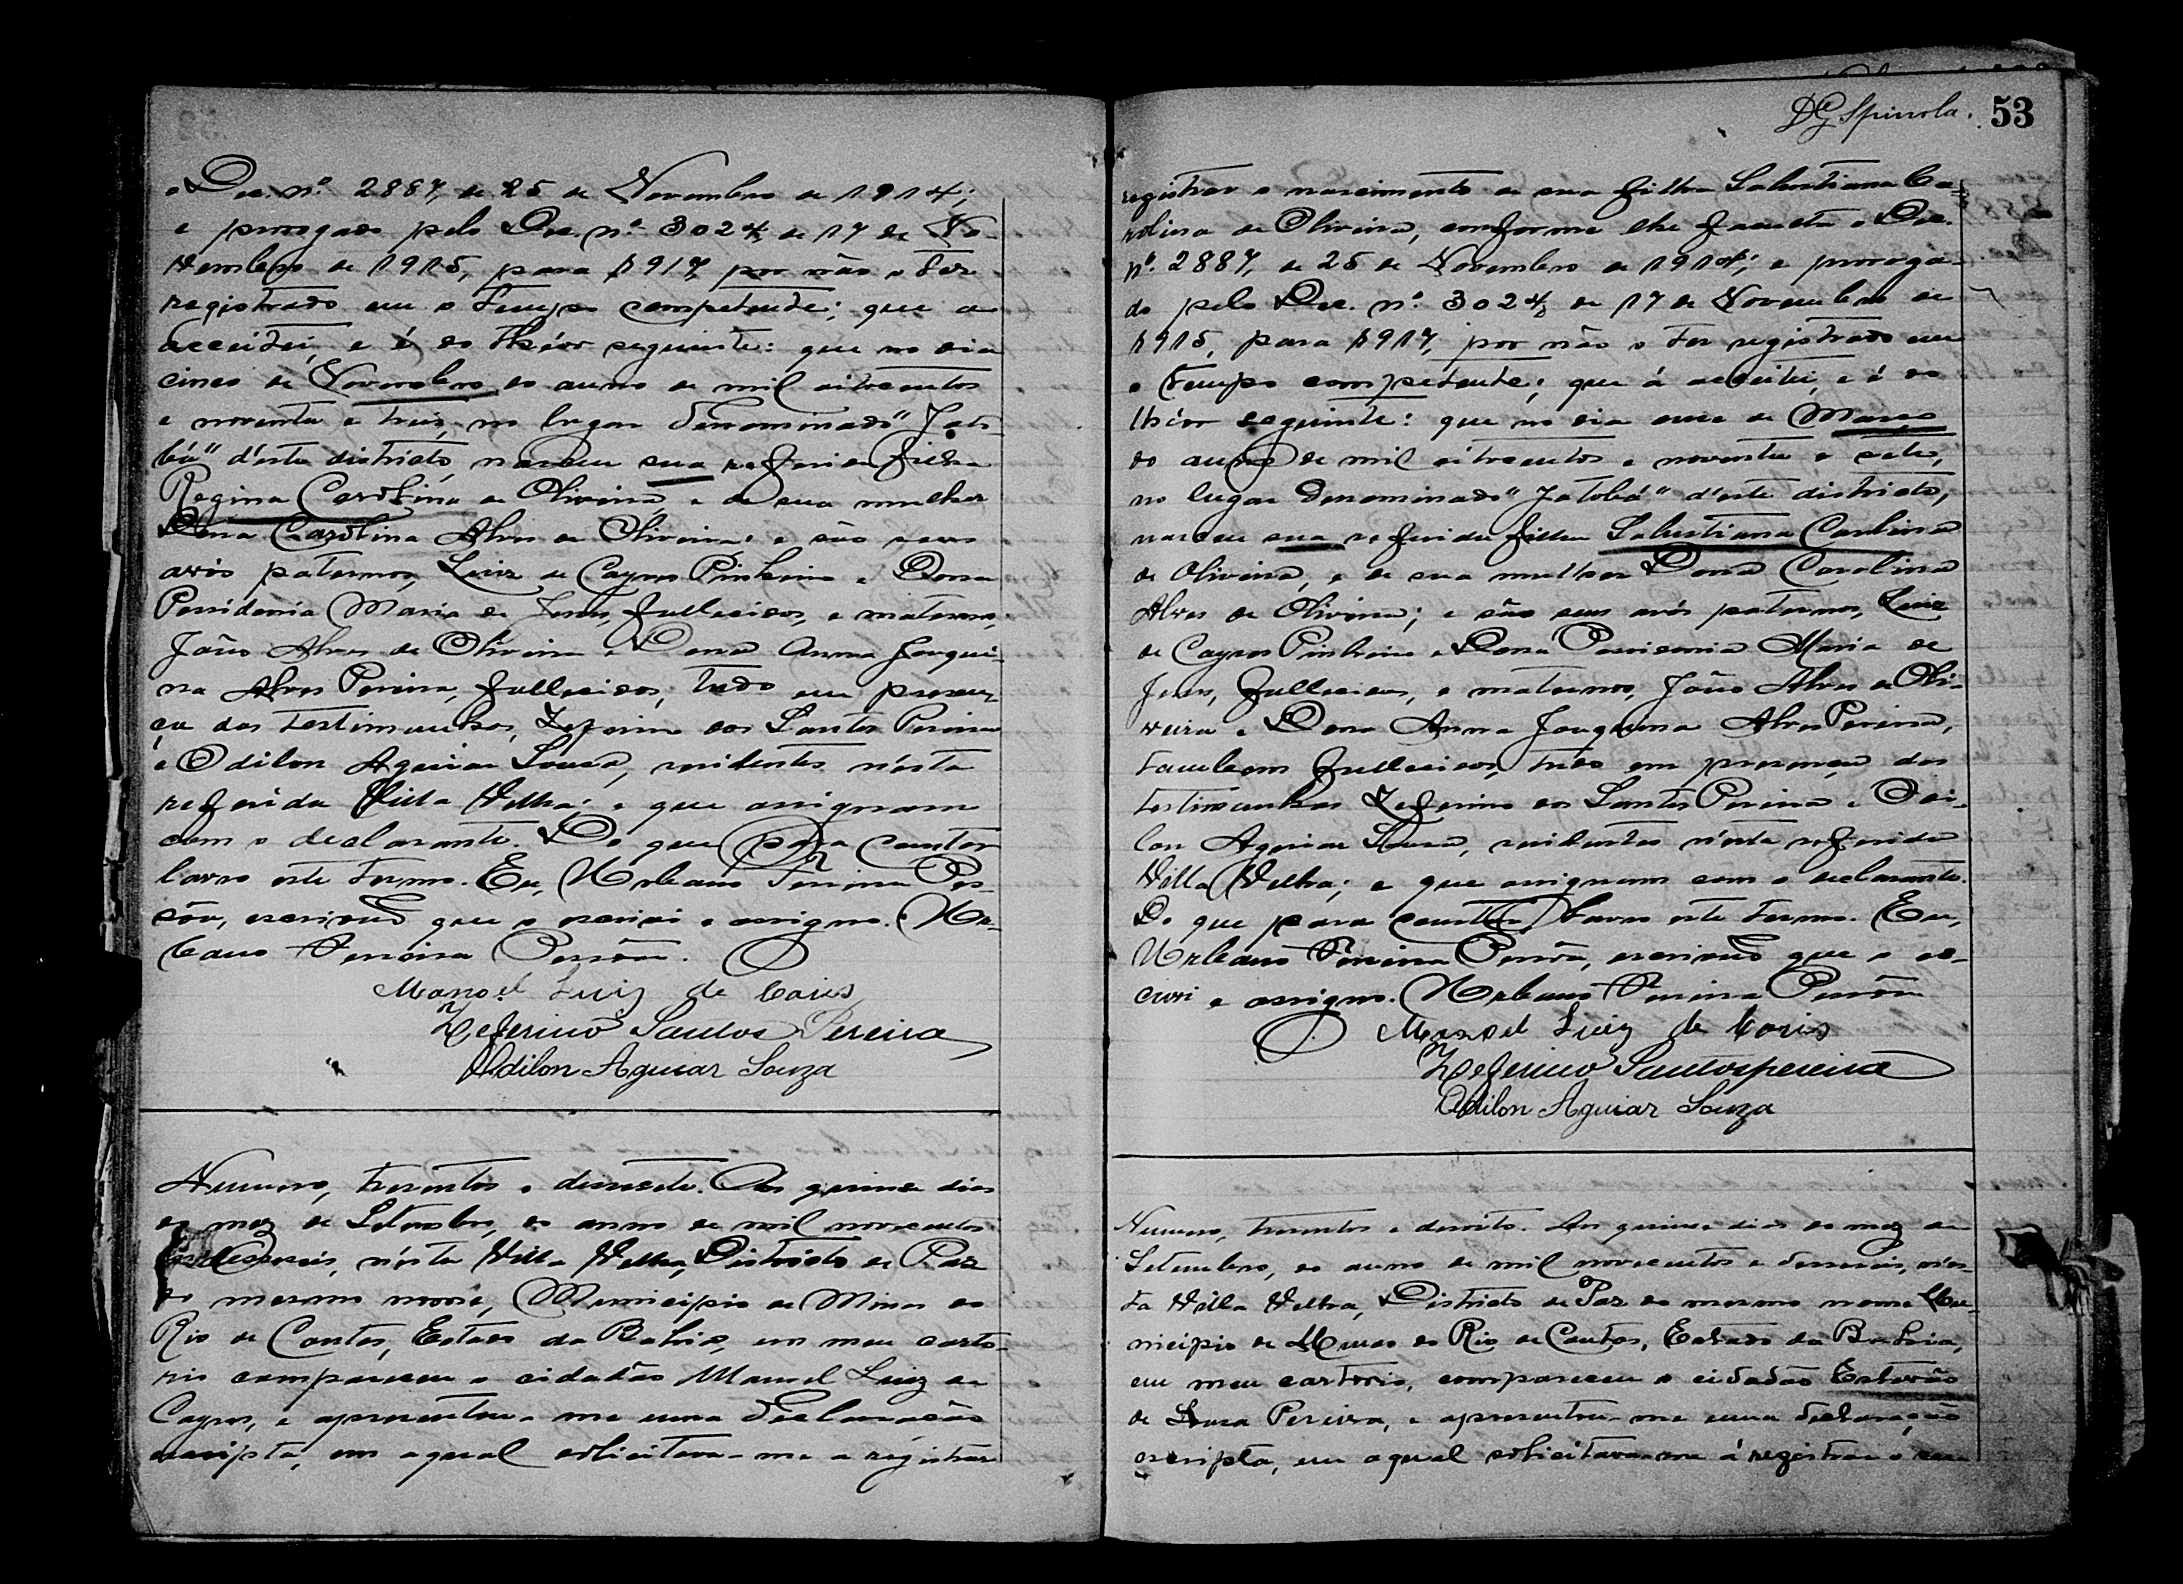 o Dec. nº 2887, de 25 de Novembro de 1914;
e prorogado pelo Dec. nº 3024, de 17 de No-
vembro de 1915, para 1917, por não o ter
registrado em o tempo competente; que a
acceitei, e é do théor seguinte: que no dia
cinco de Novembro do anno de mil oitocentos
e noventa e tres, no lugar denominado "Jato-
bá" d'este districto, nasceu sua referida filha
Regina Carolina de Oliveira, e de sua mulher
Dona Carolina Alves de Oliveira; e são seus
avós paternos, Luiz de Cayres Pinheiro e Dona
Maria de Jesus, fallecidos, e maternos,
João Alves de Oliveira e Dona Anna Joaqui-
na Alves Pereira, fallecidos, tudo em presen-
ça das testimunhas, Zeferino dos Santos Pereira
e Odilon Aguiar Souza, residentes n'esta
referida Villa Velha; e que assignam
com o declarante. Do que para constar
lavro este termo. Eu, Urbano Ferreira Pes-
sôa, escrivão que o escrivi e assigno. Ur-
bano Ferreira Pessôa.
Manoel Luiz de Caires
Zeferino Santos Pereira
Odilon Aguiar Souza
Numero, trezentos e desesete. Aos quinze dias
do mez de Setembro, do anno de mil novecentos
e deseseis, n'esta Villa Velha, Districto de Paz
do mesmo nome, Municipio de Minas do
Rio de Contas, Estado da Bahia, em meu carto-
rio compareceu o cidadão Manoel Luiz de
Cayres, e apresentou-me uma declaração
escripta, em a qual solicitava-me a registrar
DG Spinola. 53
registrar o nascimento de sua filha Salustiana Ca-
rolina de Oliveira, conforme lhe faculta o Dec.
nº 2887, de 25 de Novembro de 1914; e proroga-
do pelo Dec. nº 3024, de 17 de Novembro de
1915, para 1917, por não o ter registrado em
o tempo competente; que á acceitei, e é do
théor seguinte: que no dia onze de Março
do anno de mil oitocentos e noventa e sete,
no lugar denominado "Jatobá" d'este districto,
nasceu sua referida filha Salustiana Carolina
de Oliveira, e de sua mulher Dona Carolina
Alves de Oliveira; e são seus avós paternos, Luiz
de Cayres Pinheiro e Dona Maria de
Jesus, fallecidos, e maternos, João Alves de Oli-
veira e Dona Anna Joaquina Alves Pereira,
tambem fallecidos, tudo em presença das
testimunhas Zeferino dos Santos Pereira e Odi-
lon Aguiar Souza, residentes n'esta referida
Villa Velha; e que assignam com o declarante.
Do que para constar lavro este termo. Eu,
Urbano Ferreira Pessôa, escrivão que o es-
crivi e assigno. Urbano Ferreira Pessôa
Manoel Luiz de Caires
Zeferino Santos pereira
Odilon Aguiar Souza
Numero, trezentos e desoito. Aos quinze dias do mez de
Setembro, do anno de mil novecentos e deseseis, n'es-
ta Villa Velha, Districto de Paz do mesmo nome Mu-
nicipio de Minas do Rio de Contas, Estado da Bahia,
em meu cartorio, compareceu o cidadão Estevão
de Souza Pereira, e apresentou-me uma declaração
escripta, em a qual solicitava-me á registrar o nas-